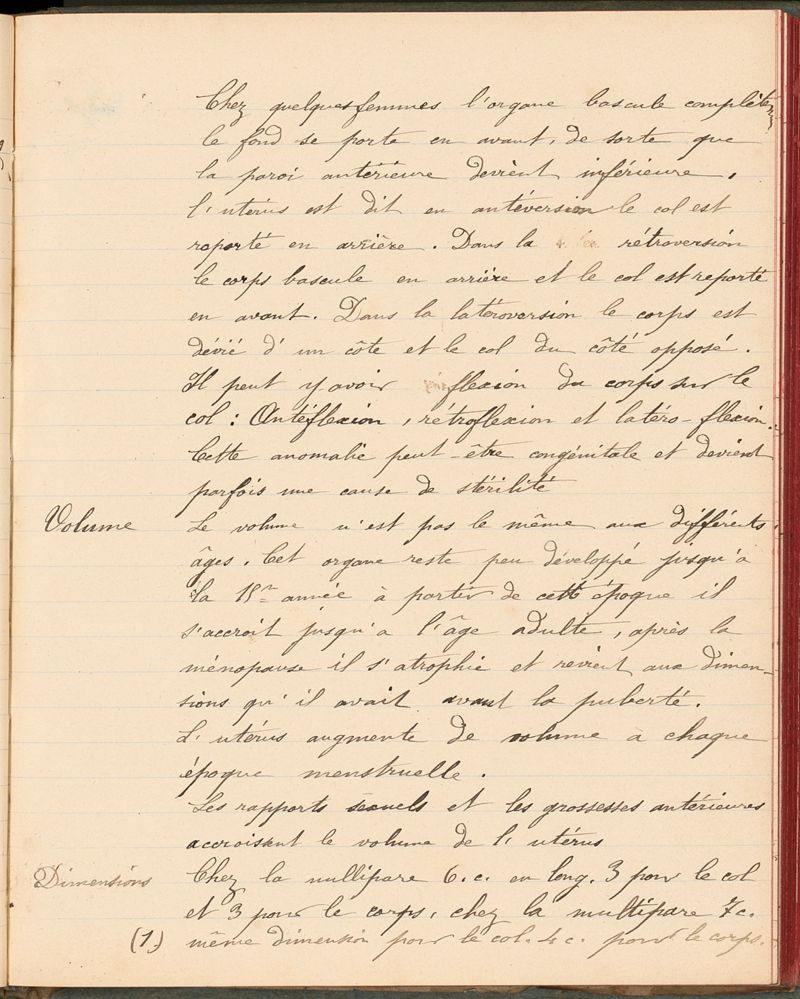 Chez quelques femmes l'organe bascule complètem
le fond se porte en avant, de sorte que
la paroi antérieure devient inférieure,
l'utérus est dit en antéversion le col est
reporté en arrière. Dans la rétroversion
le corps bascule en arrière et le col est reporté
en avant. Dans la latéroversion le corps est
dévié d'un côte et le col du côté opposé.
Il peut y avoir flexion du corps sur le
col : Antéflexion, rétroflexion et latéro-flexion.
Cette anomalie peut-être congénitale et devient
parfois une cause de stérilité
Volume Le volume n'est pas le même aux différents
âges. Cet organe reste peu développé jusqu'a
la 15me année à partir de cette époque il
s'accroit jusqu'a l'âge adulte, après la
ménopause il s'atrophie et revient aux dimen-
sions qu'il avait avant la puberté.
L'utérus augmente de volume a chaque
époque menstruelle.
Les rapports sexuels et les grossesses antérieures
accroissent le volume de l'utérus
Dimensions Chez la nullipare 6.c. en long. 3 pour le col
et 3 pour le corps, chez la multipare 7c.
(1) même dimension pour le col. 4 c. pour le corps.